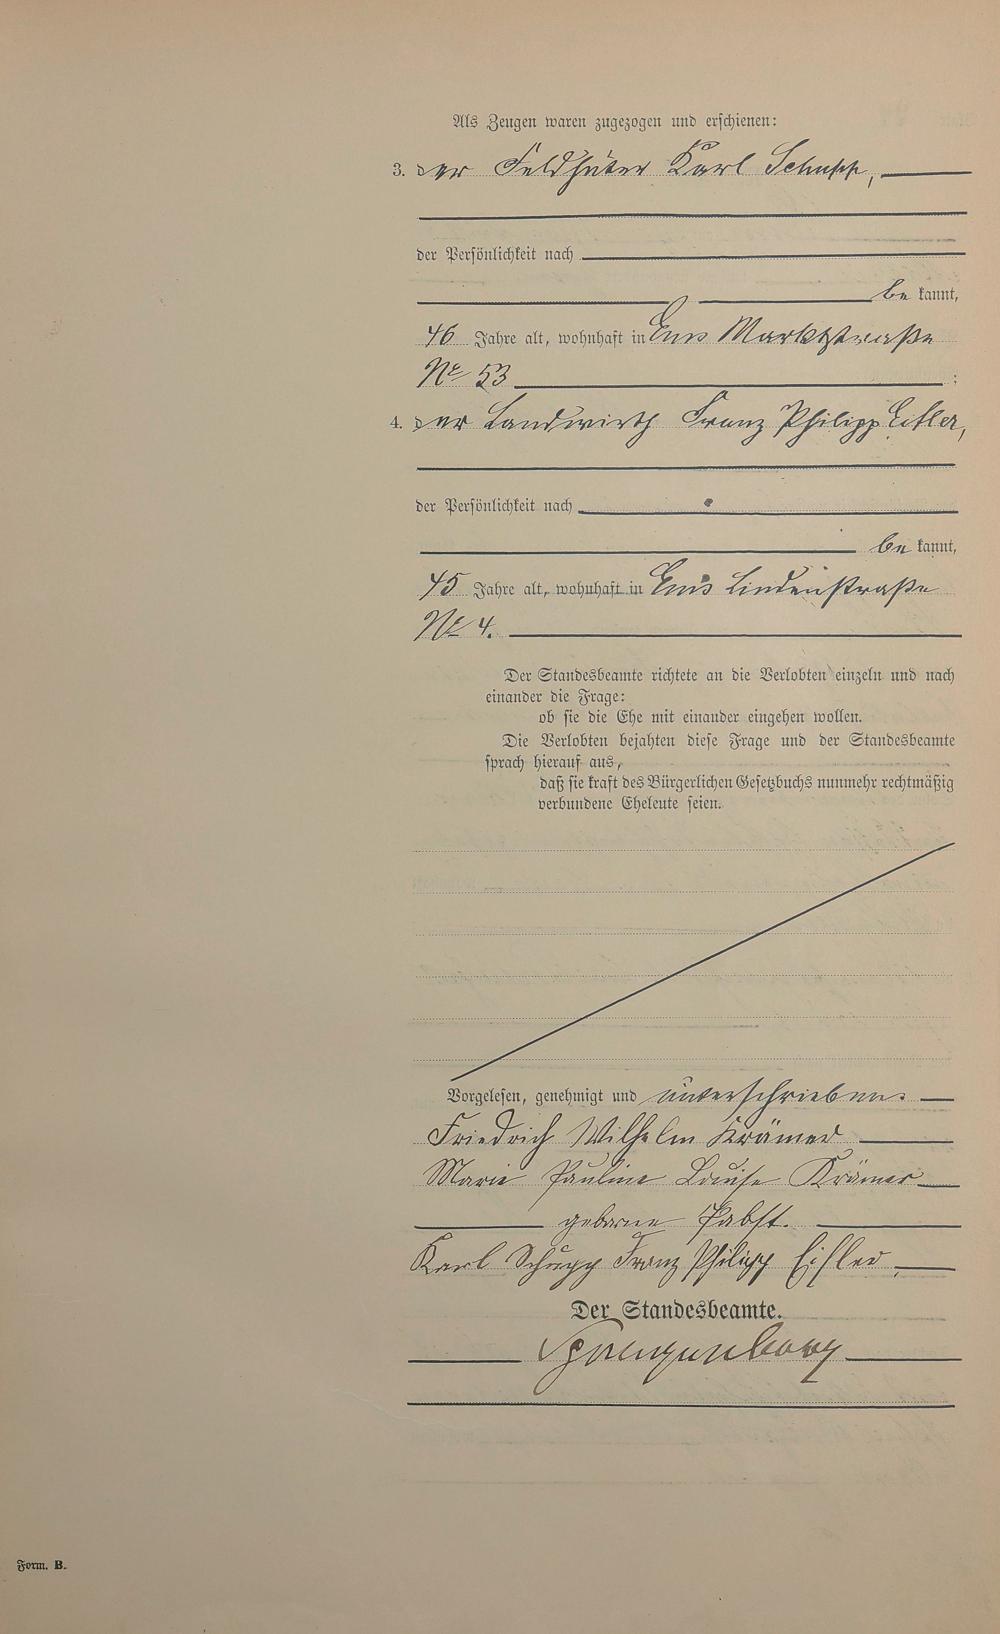 Als Zeugen waren zugezogen und erschienen:
3. der Feldhüter Karl Schupp,
der Persönlichkeit nach
be kannt,
46 Jahre alt, wohnhaft in Ems Marktstraße
No 53 ;
4. der Landwirth Franz Philipp Eisler,
der Persönlichkeit nach
be kannt,
45 Jahre alt, wohnhaft in Ems Lindenstraße
No 4.
Der Standesbeamte richtete an die Verlobten einzeln und nach
einander die Frage:
ob sie die Ehe mit einander eingehen wollen.
Die Verlobten bejahten diese Frage und der Standesbeamte
sprach hierauf aus,
daß sie kraft des Bürgerlichen Gesetzbuchs nunmehr rechtmäßig
verbundene Eheleute seien.
Vorgelesen, genehmigt und unterschrieben.
Friedrich Wilhelm Krämer
Marie Pauline Louise Krämer
geborne Pabst.
Karl Schupp Franz Philipp Eisler
Der Standesbeamte.
Form. B.